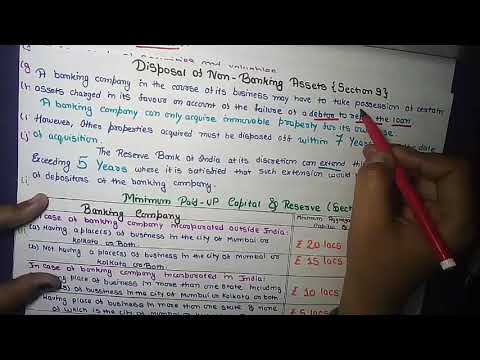 Disposal of Non-Banking Assets {Section 9}
(g) A banking company in the course of its business may have to take possession of certain
(h) assets charged in its favour on account of the failure of a debtor to the loan
A banking company can only acquire immovable property for its own use.
(i) However, Other properties acquired must be disposed off within 7 Years date
(j) of acquisition.
The Reserve Bank of India at its discretion can extend
Exceeding 5 Years where it is satisfied that such extension would
of depositors of the banking company.
Minimum Paid-UP Capital & Reserve
Banking Company
case of banking company incorporated outside India:
(a) Having a place(s) of business in the city of Mumbai or
Kolkata or Both
₹ 20 lacs
(b) Not having a place(s) of business in the city of Mumbai or
Kolkata or Both
₹ 15 lacs
In case of banking company incorporated in India:
place of business in more than one State including
of business in the city of Mumbai or Kolkata or both
₹ 10 lacs
Having place of business in more than one state & none
of which is the city of Mumbai or
₹ 5 lacs